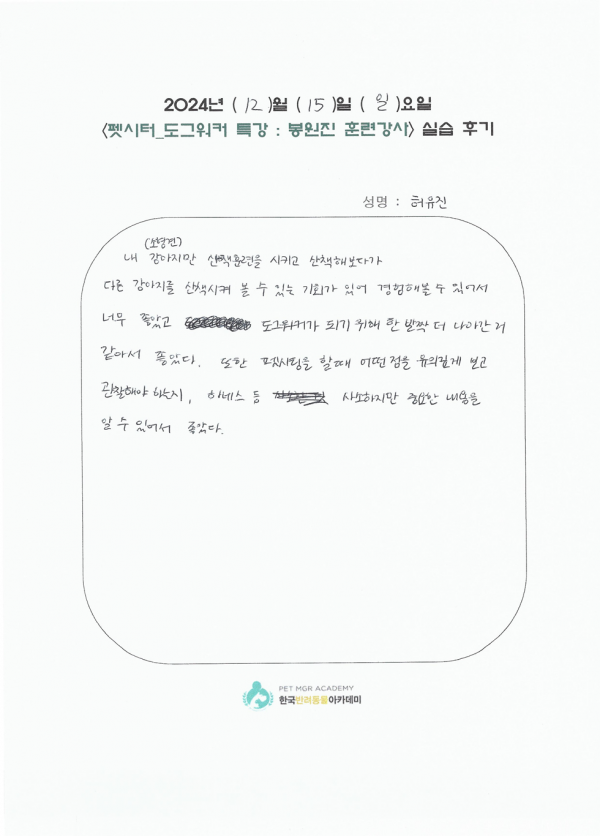 2024년 ( 12 )월 ( 15 )일 ( 일 )요일
<펫시터_도그워커 특강 : 봉원진 훈련강사> 실습 후기
성명 : 허유진
(소형견)
내 강아지만 산책훈련을 시키고 산책해보다가
다른 강아지를 산책시켜 볼 수 있는 기회가 있어 경험해볼 수 있어서
너무 좋았고 도그워커가 되기 위해 한 발짝 더 나아간 거
같아서 좋았다. 또한 펫시팅을 할때 어떤점을 유의깊게 보고
관찰해야 하는지, 하네스 등 사소하지만 중요한 내용을
알 수 있어서 좋았다.
PET MGR ACADEMY
한국반려동물아카데미